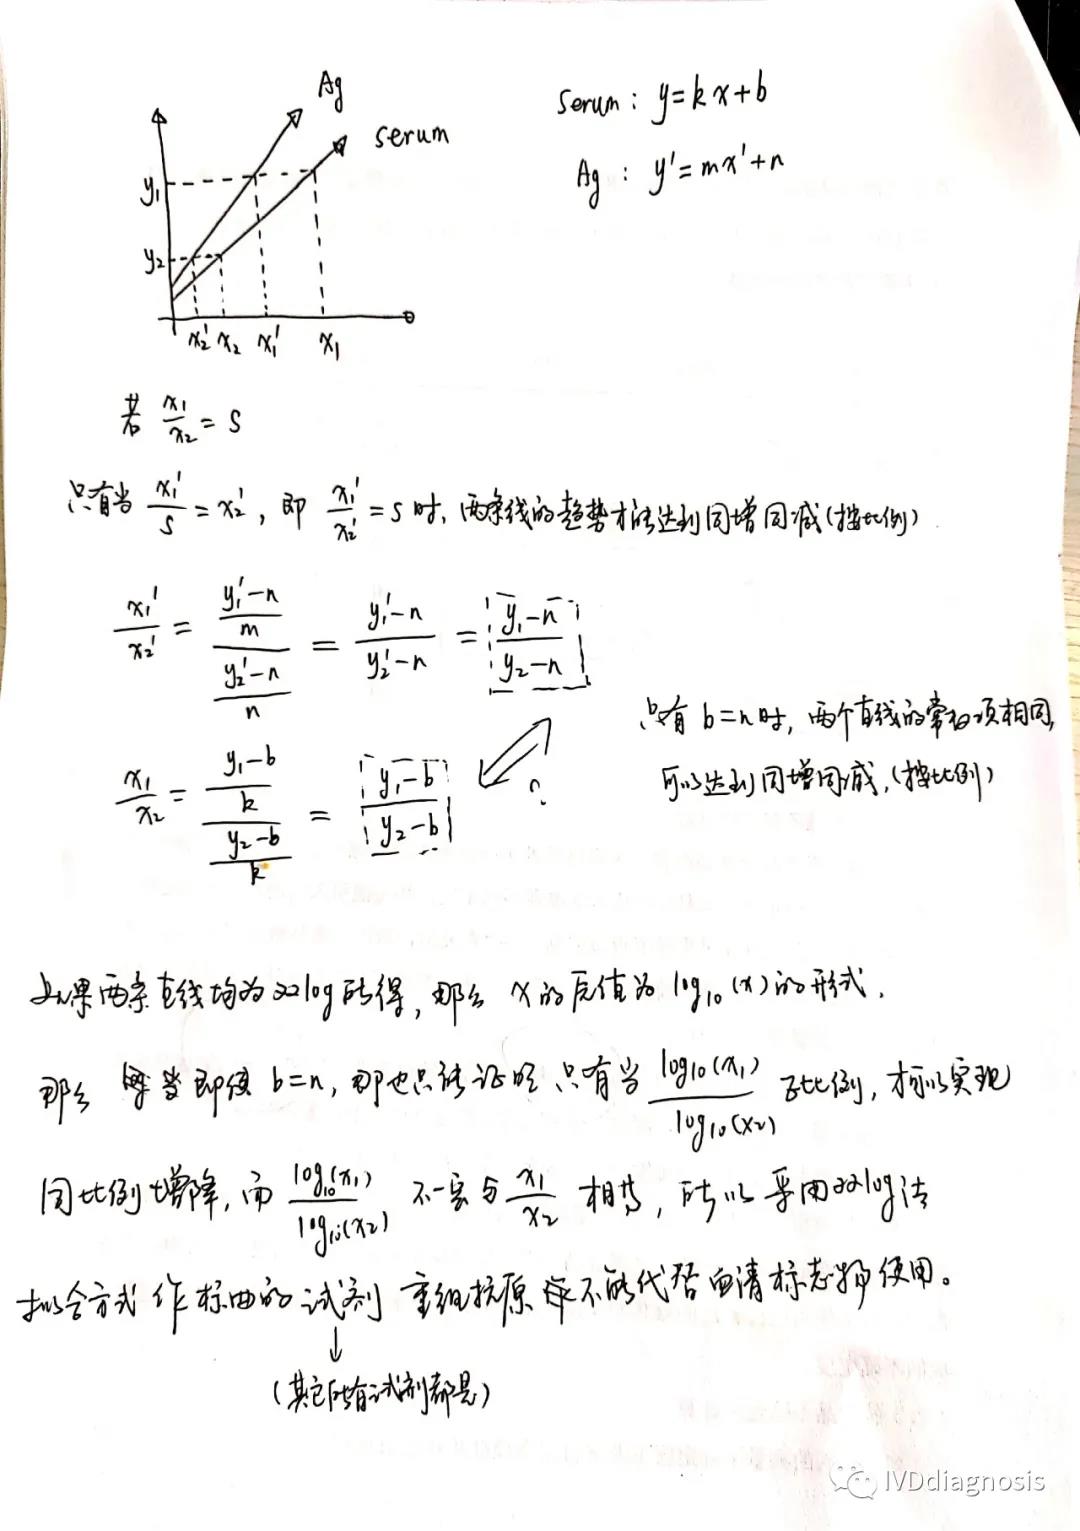 Ag
serum
y₁
y₂
x₂' x₂ x₁' x₁
Serum: y=kx+b
Ag: y'=mx'+n
若 x₁/x₂ = S
只有当 x₁'/S = x₂', 即 x₁'/x₂' = S 时, 两条线的趋势才能达到同增同减(按比例)
x₁'/x₂' = ((y₁'-n)/m)/((y₂'-n)/n) = (y₁'-n)/(y₂'-n) = (y₁-n)/(y₂-n)
?
x₁/x₂ = ((y₁-b)/k)/((y₂-b)/k) = (y₁-b)/(y₂-b)
只有 b=n 时, 两个直线的常数项相同,
可以达到同增同减, (按比例)
如果两条直线均为双log所得, 那么 x的原值为 log₁₀(x)的形式.
那么 即使 b=n, 那也只能证明 只有当 log₁₀(x₁)/log₁₀(x₂) 成比例, 才可以实现
同比例增降, 而 log₁₀(x₁)/log₁₀(x₂) 不一定与 x₁/x₂ 相等, 所以采用双log法
拟合方式作标曲的试剂 重组抗原 不能代替血清标志物使用。
↓
(其它所有试剂都是)
IVDdiagnosis